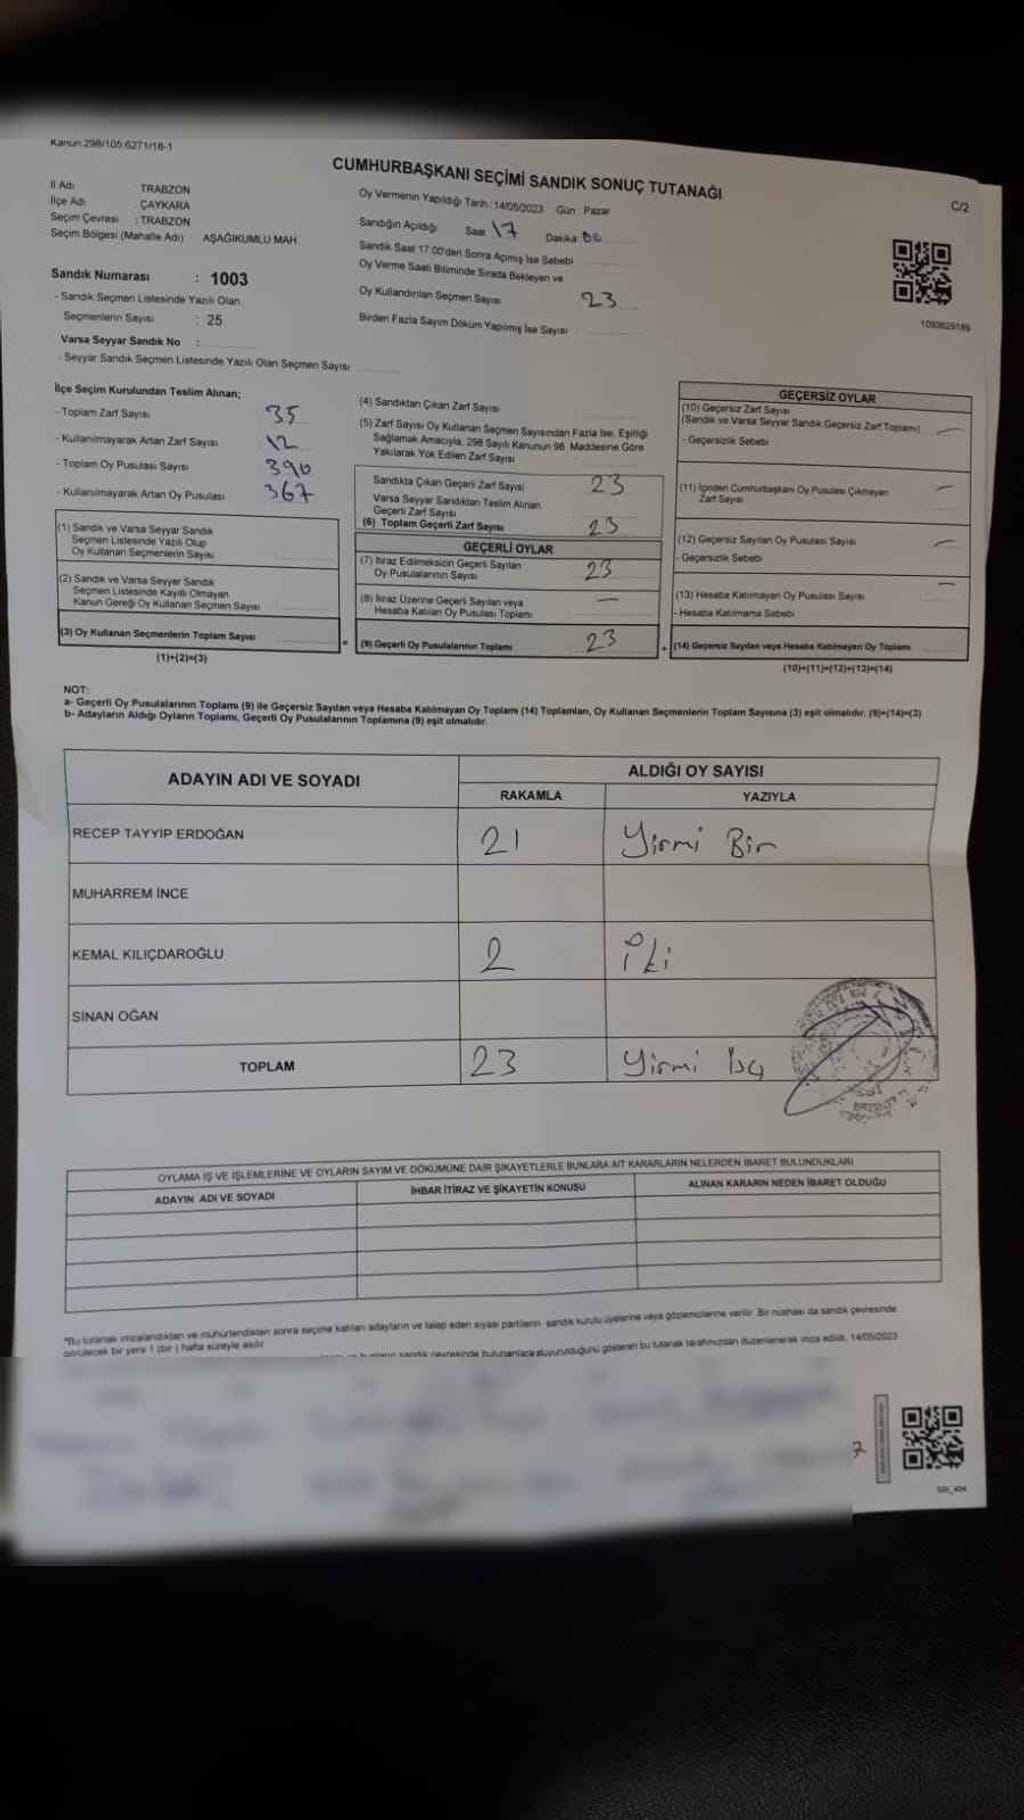 Kanun:298/105;6271/18-1
CUMHURBAŞKANI SEÇİMİ SANDIK SONUÇ TUTANAĞI
C/2
İl Adı TRABZON
İlçe Adı ÇAYKARA
Seçim Çevresi : TRABZON
Seçim Bölgesi (Mahalle Adı) AŞAĞIKUMLU MAH.
Oy Vermenin Yapıldığı Tarih: 14/05/2023 Gün: Pazar
Sandığın Açıldığı Saat 17 Dakika
Sandık Saat 17:00'den Sonra Açılmış İse Sebebi
Oy Verme Saati Bitiminde Sırada Bekleyen ve
Oy Kullandırılan Seçmen Sayısı 23
Birden Fazla Sayım Döküm Yapılmış İse Sayısı
1090829189
Sandık Numarası : 1003
- Sandık Seçmen Listesinde Yazılı Olan
Seçmenlerin Sayısı : 25
Varsa Seyyar Sandık No :
- Seyyar Sandık Seçmen Listesinde Yazılı Olan Seçmen Sayısı
İlçe Seçim Kurulundan Teslim Alınan;
- Toplam Zarf Sayısı 35
- Kullanılmayarak Artan Zarf Sayısı 12
- Toplam Oy Pusulası Sayısı 390
- Kullanılmayarak Artan Oy Pusulası 367
(1) Sandık ve Varsa Seyyar Sandık
Seçmen Listesinde Yazılı Olup
Oy Kullanan Seçmenlerin Sayısı
(2) Sandık ve Varsa Seyyar Sandık
Seçmen Listesinde Kayıtlı Olmayan
Kanun Gereği Oy Kullanan Seçmen Sayısı
(3) Oy Kullanan Seçmenlerin Toplam Sayısı
(1)+(2)=(3)
(4) Sandıktan Çıkan Zarf Sayısı
(5) Zarf Sayısı Oy Kullanan Seçmen Sayısından Fazla İse, Eşitliği
Sağlamak Amacıyla, 298 Sayılı Kanunun 98. Maddesine Göre
Yakılarak Yok Edilen Zarf Sayısı
Sandıkta Çıkan Geçerli Zarf Sayısı 23
Varsa Seyyar Sandıktan Teslim Alınan
Geçerli Zarf Sayısı
(6) Toplam Geçerli Zarf Sayısı 23
GEÇERLİ OYLAR
(7) İtiraz Edilmeksizin Geçerli Sayılan
Oy Pusulalarının Sayısı 23
(8) İtiraz Üzerine Geçerli Sayılan veya
Hesaba Katılan Oy Pusulası Toplamı —
(9) Geçerli Oy Pusulalarının Toplamı 23
GEÇERSİZ OYLAR
(10) Geçersiz Zarf Sayısı
(Sandık ve Varsa Seyyar Sandık Geçersiz Zarf Toplamı) —
- Geçersizlik Sebebi
(11) İçinden Cumhurbaşkanı Oy Pusulası Çıkmayan
Zarf Sayısı —
(12) Geçersiz Sayılan Oy Pusulası Sayısı —
- Geçersizlik Sebebi
(13) Hesaba Katılmayan Oy Pusulası Sayısı —
- Hesaba Katılmama Sebebi
(14) Geçersiz Sayılan veya Hesaba Katılmayan Oy Toplamı
(10)+(11)+(12)+(13)=(14)
NOT:
a- Geçerli Oy Pusulalarının Toplamı (9) ile Geçersiz Sayılan veya Hesaba Katılmayan Oy Toplamı (14) Toplamları, Oy Kullanan Seçmenlerin Toplam Sayısına (3) eşit olmalıdır. (9)+(14)=(3)
b- Adayların Aldığı Oyların Toplamı, Geçerli Oy Pusulalarının Toplamına (9) eşit olmalıdır.
ADAYIN ADI VE SOYADI ALDIĞI OY SAYISI
RAKAMLA YAZIYLA
RECEP TAYYİP ERDOĞAN 21 Yirmi Bir
MUHARREM İNCE
KEMAL KILIÇDAROĞLU 2 İki
SİNAN OĞAN
TOPLAM 23 Yirmi
OYLAMA İŞ VE İŞLEMLERİNE VE OYLARIN SAYIM VE DÖKÜMÜNE DAİR ŞİKAYETLERLE BUNLARA AİT KARARLARIN NELERDEN İBARET BULUNDUKLARI
ADAYIN ADI VE SOYADI İHBAR İTİRAZ VE ŞİKAYETİN KONUSU ALINAN KARARIN NEDEN İBARET OLDUĞU
*Bu tutanak imzalandıktan ve mühürlendikten sonra seçime katılan adayların ve talep eden siyasi partilerin sandık kurulu üyelerine veya gözlemcilerine verilir. Bir nüshası da sandık çevresinde
görülecek bir yere 1 (bir) hafta süreyle asılır.
sandık çevresinde bulunanlara duyurulduğunu gösteren bu tutanak tarafımızdan düzenlenerek imza edildi. 14/05/2023